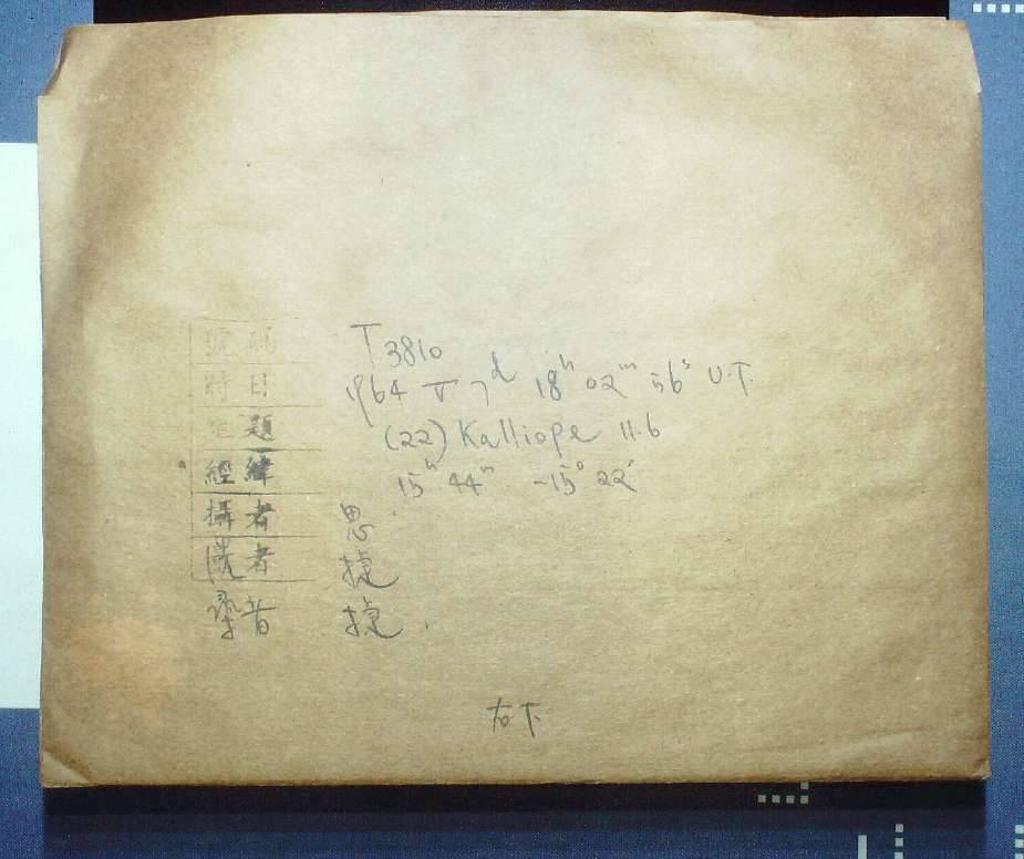 號碼 T 3810
時日 1964 V 7ᵈ 18ʰ 02ᵐ 56ˢ U.T.
題 (22) Kalliope 11.6
經緯 15ʰ 44ᵐ -15° 22′
攝者 思
洗者 捷
尋者 捷.
右下